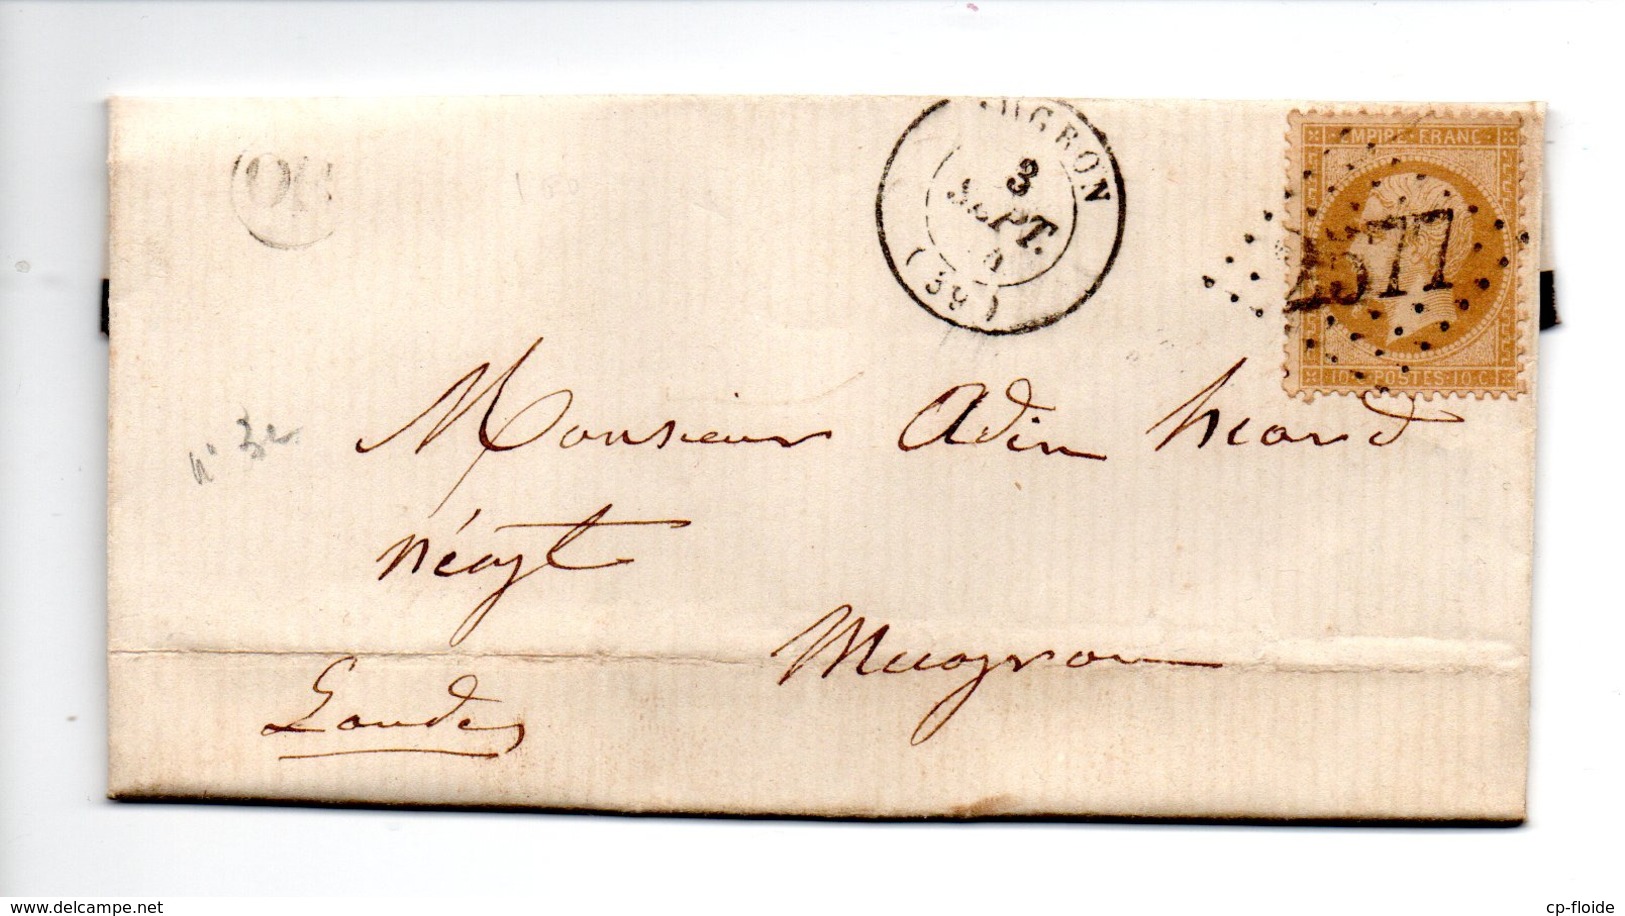 OR
UGRON
3
SEPT.
(39)
EMPIRE FRANC
2577
10 C POSTES 10 C
n° 3e
Monsieur Adin
Négt
Mugron
Landes
www.delcampe.net
cp-floide